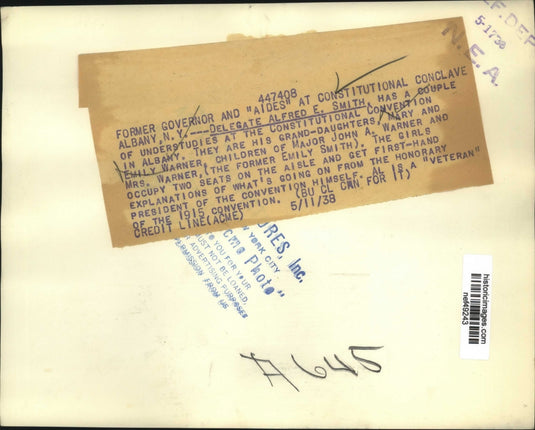 447408
FORMER GOVERNOR AND "AIDES" AT CONSTITUTIONAL CONCLAVE
ALBANY, N.Y.---DELEGATE ALFRED E. SMITH, HAS A COUPLE
OF UNDERSTUDIES AT THE CONSTITUTIONAL CONVENTION
IN ALBANY. THEY ARE HIS GRAND-DAUGHTERS, MARY AND
EMILY WARNER, CHILDREN OF MAJOR JOHN A. WARNER AND
MRS. WARNER, (THE FORMER EMILY SMITH). THE GIRLS
OCCUPY TWO SEATS ON THE AISLE AND GET FIRST-HAND
EXPLANATIONS OF WHAT'S GOING ON FROM THE HONORARY
PRESIDENT OF THE CONVENTION HIMSELF. AL IS A "VETERAN"
OF THE 1915 CONVENTION. (BU CL CAN FOR II),
CREDIT LINE(ACME) 5/11/38
F. DEP
5-17 38
N. E. A.
URES, Inc.
NEW YORK CITY
cme Photo"
TO YOU FOR YOUR
UST NOT BE LOANED,
ADVERTISING PURPOSES
PERMISSION FROM US
historicimages.com
nef49243
A 645